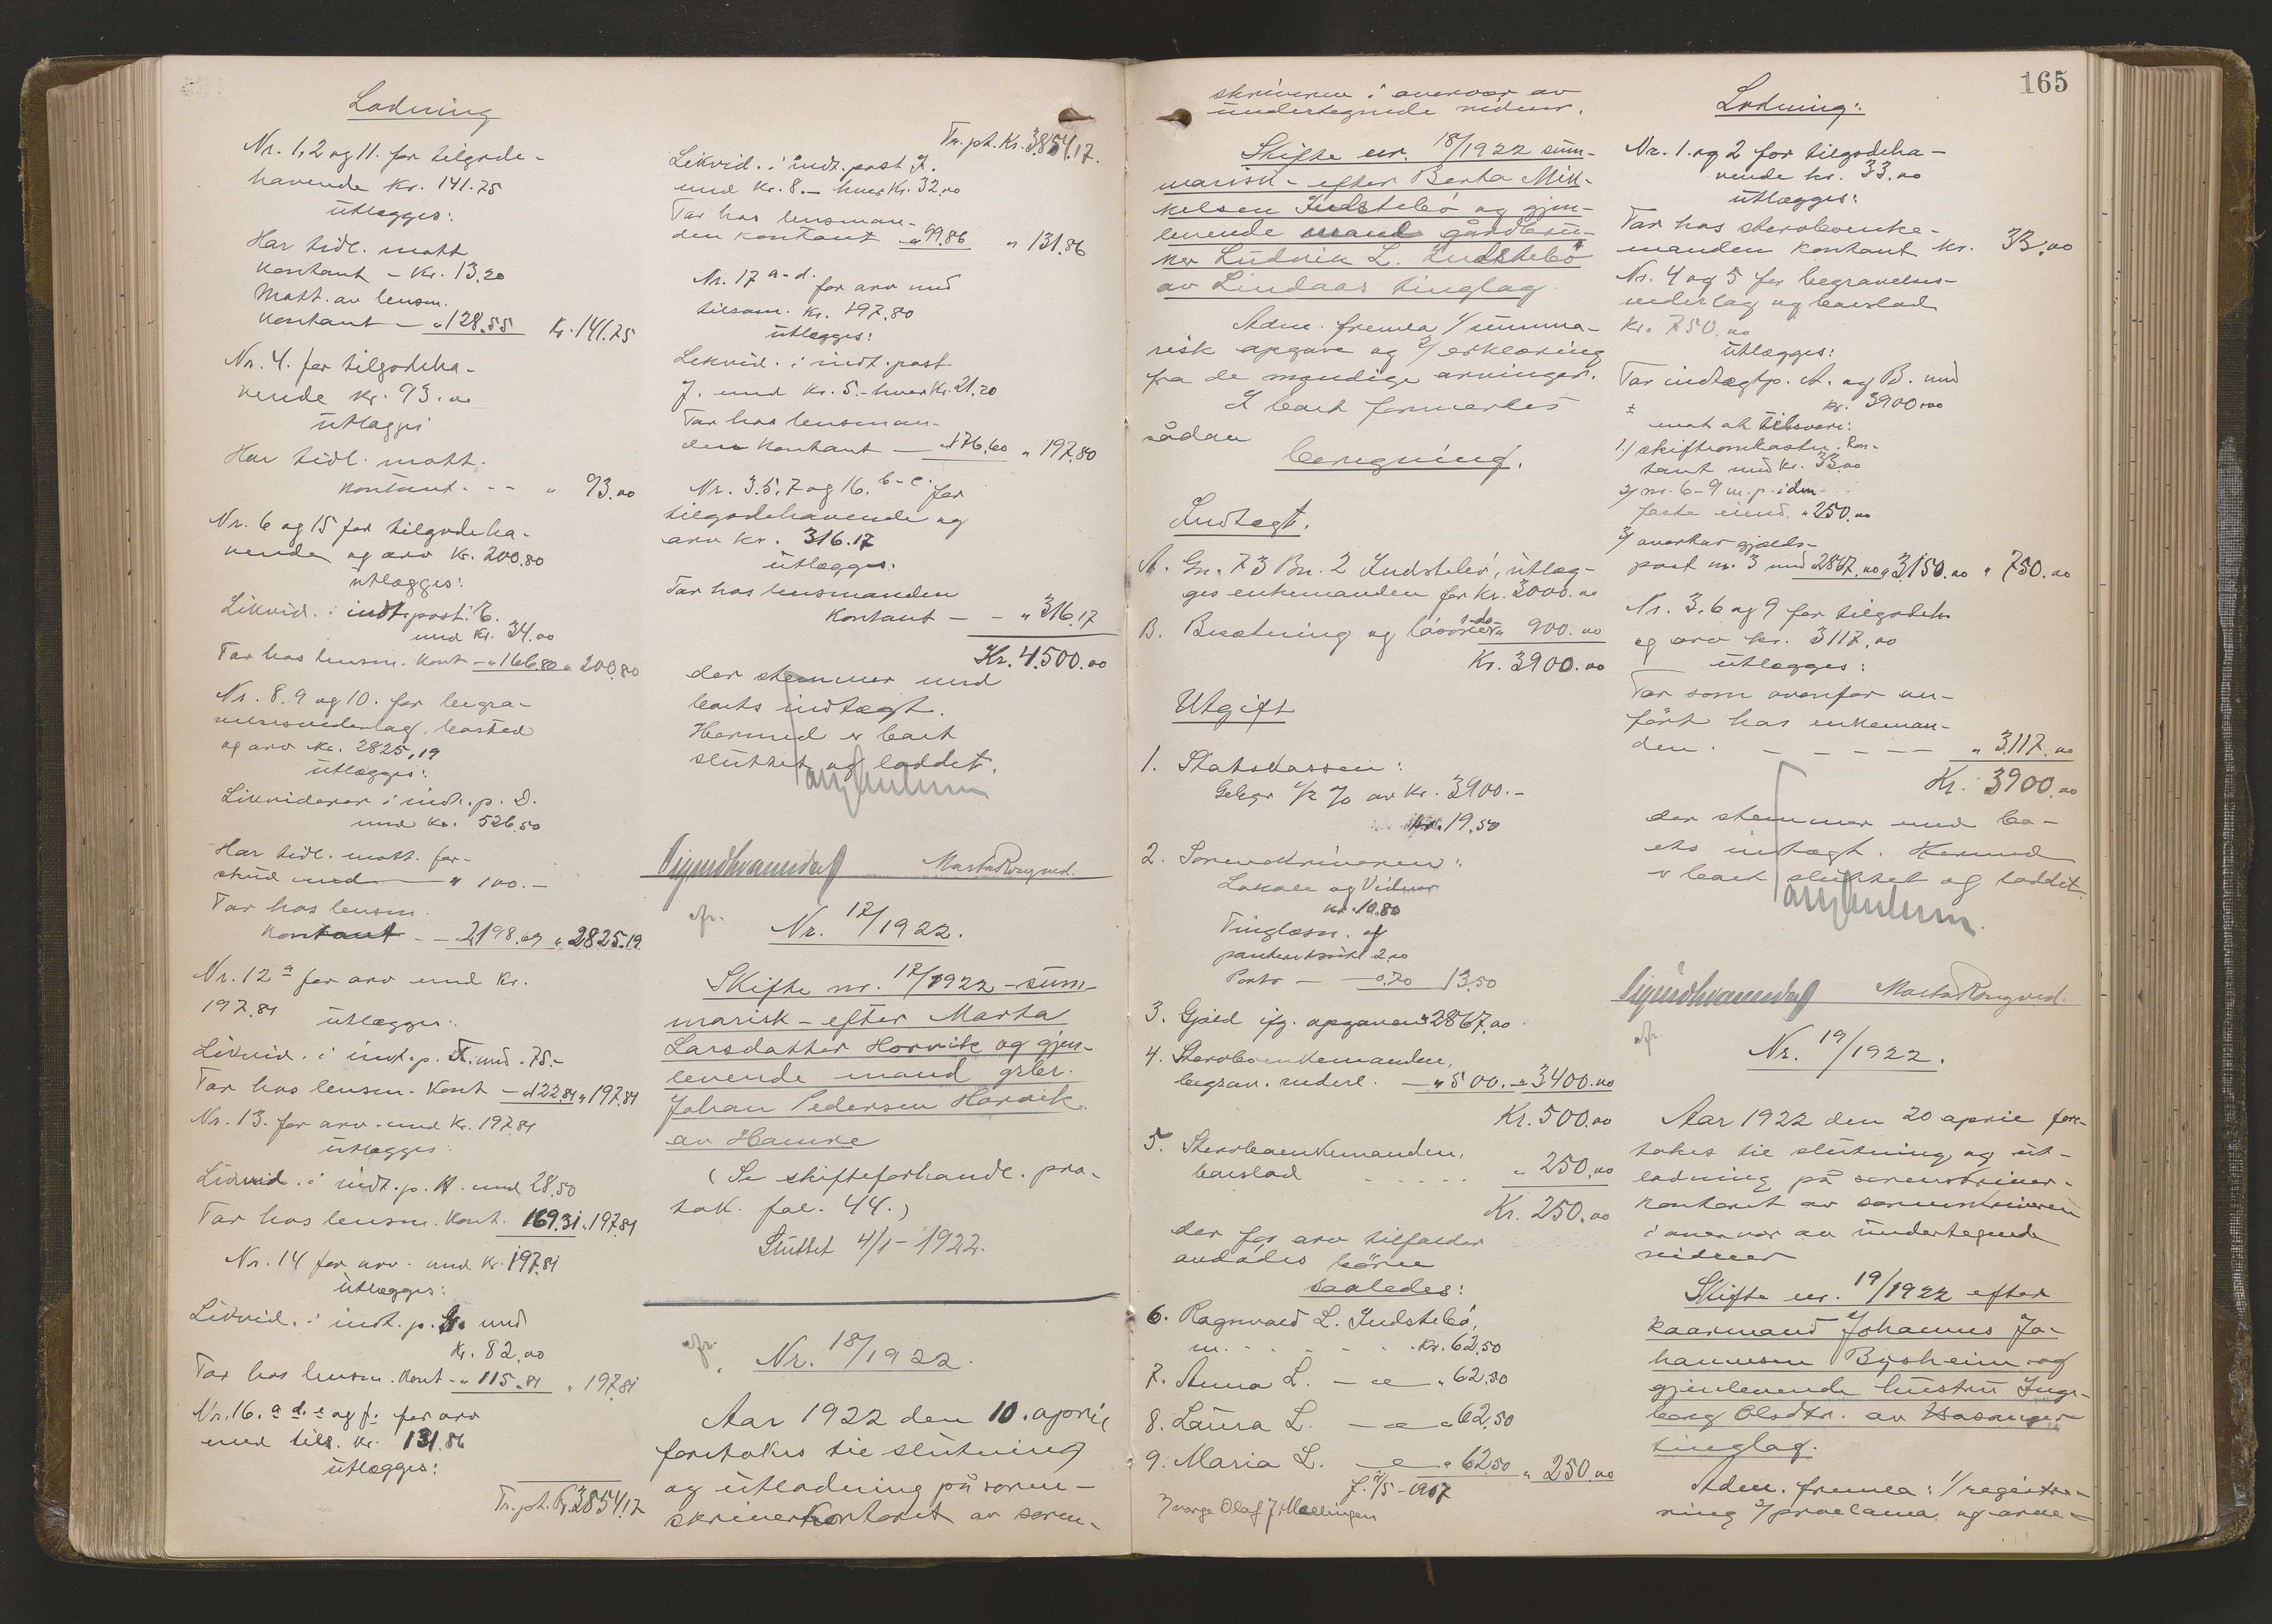 Lodning
Nr. 1, 2 og 11. for tilgode-
havende Kr. 141.75
utlægges:
Har tidl. mott
Kontant - Kr. 13.20
Mott. av lensm.
Kontant - " 128.55 Kr. 141.75
Nr. 4. for tilgodeha-
vende Kr. 93.00
utlægges
Har tidl. mott.
Kontant - - " 93.00
Nr. 6 og 15 for tilgodeha-
vende og arv Kr. 200.80
utlægges:
Likvid. i indt. post. E.
med Kr. 34.00
Tar hos lensm. Kont - " 166.80 " 200.80
Nr. 8, 9 og 10. for begra-
velsesvederlag, boslod
og arv Kr. 2825.19
utlægges:
Likviderer i indt. p. D.
med Kr. 526.50
Har tidl. mott. for-
skud med " 100.-
Tar hos lensm.
Kontant - " 2198.69 " 2825.19
Nr. 12 a for arv med Kr.
197.84 utlægges:
Likvid. i indt. p. F. med " 75.-
Tar hos lensm. Kont - " 122.84 " 197.84
Nr. 13. for arv med Kr. 197.84
utlægges:
Likvid. i indt. p. H. med 28.50
Tar hos lensm. Kont. 169.31 " 197.84
Nr. 14 for arv. med Kr. 197.84
utlægges:
Likvid. i indt. p. G. med
Kr. 82.00
Tar hos lensm. Kont - " 115.84 " 197.84
Nr. 16. a d. e og f. for arv
med tils. Kr. 131.86
utlægges:
Tr. pt. Kr. 3854.17
Tr. pt. Kr. 3854.17.
Likvid. i indt. post I.
med Kr. 8.- hver Kr. 32.00
Tar hos lensman-
den kontant " 99.86 " 131.86
Nr. 17 a-d. for arv med
tilsam. Kr. 197.80
utlægges:
Likvid. i indt. post
J. med Kr. 5.- hver Kr. 21.20
Tar hos lensman-
den Kontant - " 176.60 " 197.80
Nr. 3. 5. 7 og 16. b-c. for
tilgodehavende og
arv Kr. 316.17
utlægges.
Tar hos lensmanden
Kontant - - " 316.17
Kr. 4500.00
der stemmer med
boets indtægt.
Hermed er boet
sluttet og loddet.
Marta Rongved.
Nr. 17/1922.
Skifte nr. 17/1922 - sum-
marisk - efter Marta
Larsdatter Horvik og gjen-
levende mand grbr.
Johan Pedersen Horvik
av Hamre
(Se skifteforhandl. pro-
tok. fol. 44.)
Sluttet 4/1 - 1922.
Nr. 18/1922.
Aar 1922 den 10. april
foretokes til slutning
og utlodning på soren-
skriverkontoret av soren-
165
skriveren i overvær av
undertegnede vidner.
Skifte nr. 18/1922 sum-
marisk - efter Berta Mik-
kelsen Indstebö og gjen-
levende mand gårdbru-
ker Ludvik L. Indstebö
av Lindaas tinglag
Adm. fremla 1/ summa-
risk opgave og 2/ erklæring
fra de myndige arvinger.
I boet formertes
sådan
beregning.
Indtægt.
A. Gn. 73 Bn. 2 Indstebö, utlæg-
ges enkemanden for Kr. 3000.00
B. Besætning og løsøre " 900.00
Kr. 3900.00
Utgift
1. Statskassen:
Gebyr 1/2 % av Kr. 3900.-
Kr. 19.50
2. Sorenskriveren:
Lokale og Vidner
Kr. 10.80
Tinglæsn. af
2.00
Porto - 0.70 13.50
3. Gjæld ifg. opgaven " 2867.00
4. Stervboenkemanden,
begrav. vederl. - " 500.- " 3400.00
Kr. 500.00
5. Stervboenkemanden,
boslod - - - - - " 250.00
Kr. 250.00
der for arv tilfalder
avdødes börn
saaledes:
6. Ragnvald L. Indstebö,
m. - - - - - Kr. 62.50
7. Anna L. - " - " 62.50
8. Laura L. - " - " 62.50
9. Maria L. - " - " 62.50 " 250.00
1907
verge Olaf J. Mellingen
Lodning:
Nr. 1. og 2 for tilgodeha-
vende kr. 33.00
utlægges:
Tar hos stervboenke-
manden kontant Kr. 33.00
Nr. 4 og 5 for begravelses-
vederlag og boslod
Kr. 750.00
utlægges:
Tar indtægtp. A. og B. med
Kr. 3900.00
mot at tilsvare:
1/ skifteomkostn. Kon-
tant med Kr. 33.00
2/ nr. 6-9 m. p. i den
faste eiend. " 250.00
3/ overtar gjælds-
post nr. 3 med 2867.00 " 3150.00 " 750.00
Nr. 3. 6 og 9 for tilgodeh.
og arv kr. 3117.00
utlægges:
Tar som ovenfor an-
fört hos enkeman-
den. - - - - - " 3117.00
Kr. 3900.00
der stemmer med bo-
ets indtægt. Hermed
er boet sluttet og loddet.
Marta Rongved.
Nr. 19/1922.
Aar 1922 den 20 april fore-
tokes til slutning og ut-
lodning på sorenskriver-
kontoret av sorenskriveren
i overvær av undertegnede
vidner
Skifte nr. 19/1922 efter
kaarmand Johannes Jo-
hannesen Bysheim og
gjenlevende hustru Inge-
borg Olsdtr. av Hosanger
tinglag.
Adm. fremla: 1/ registre-
ring 2/ proclama og arve-